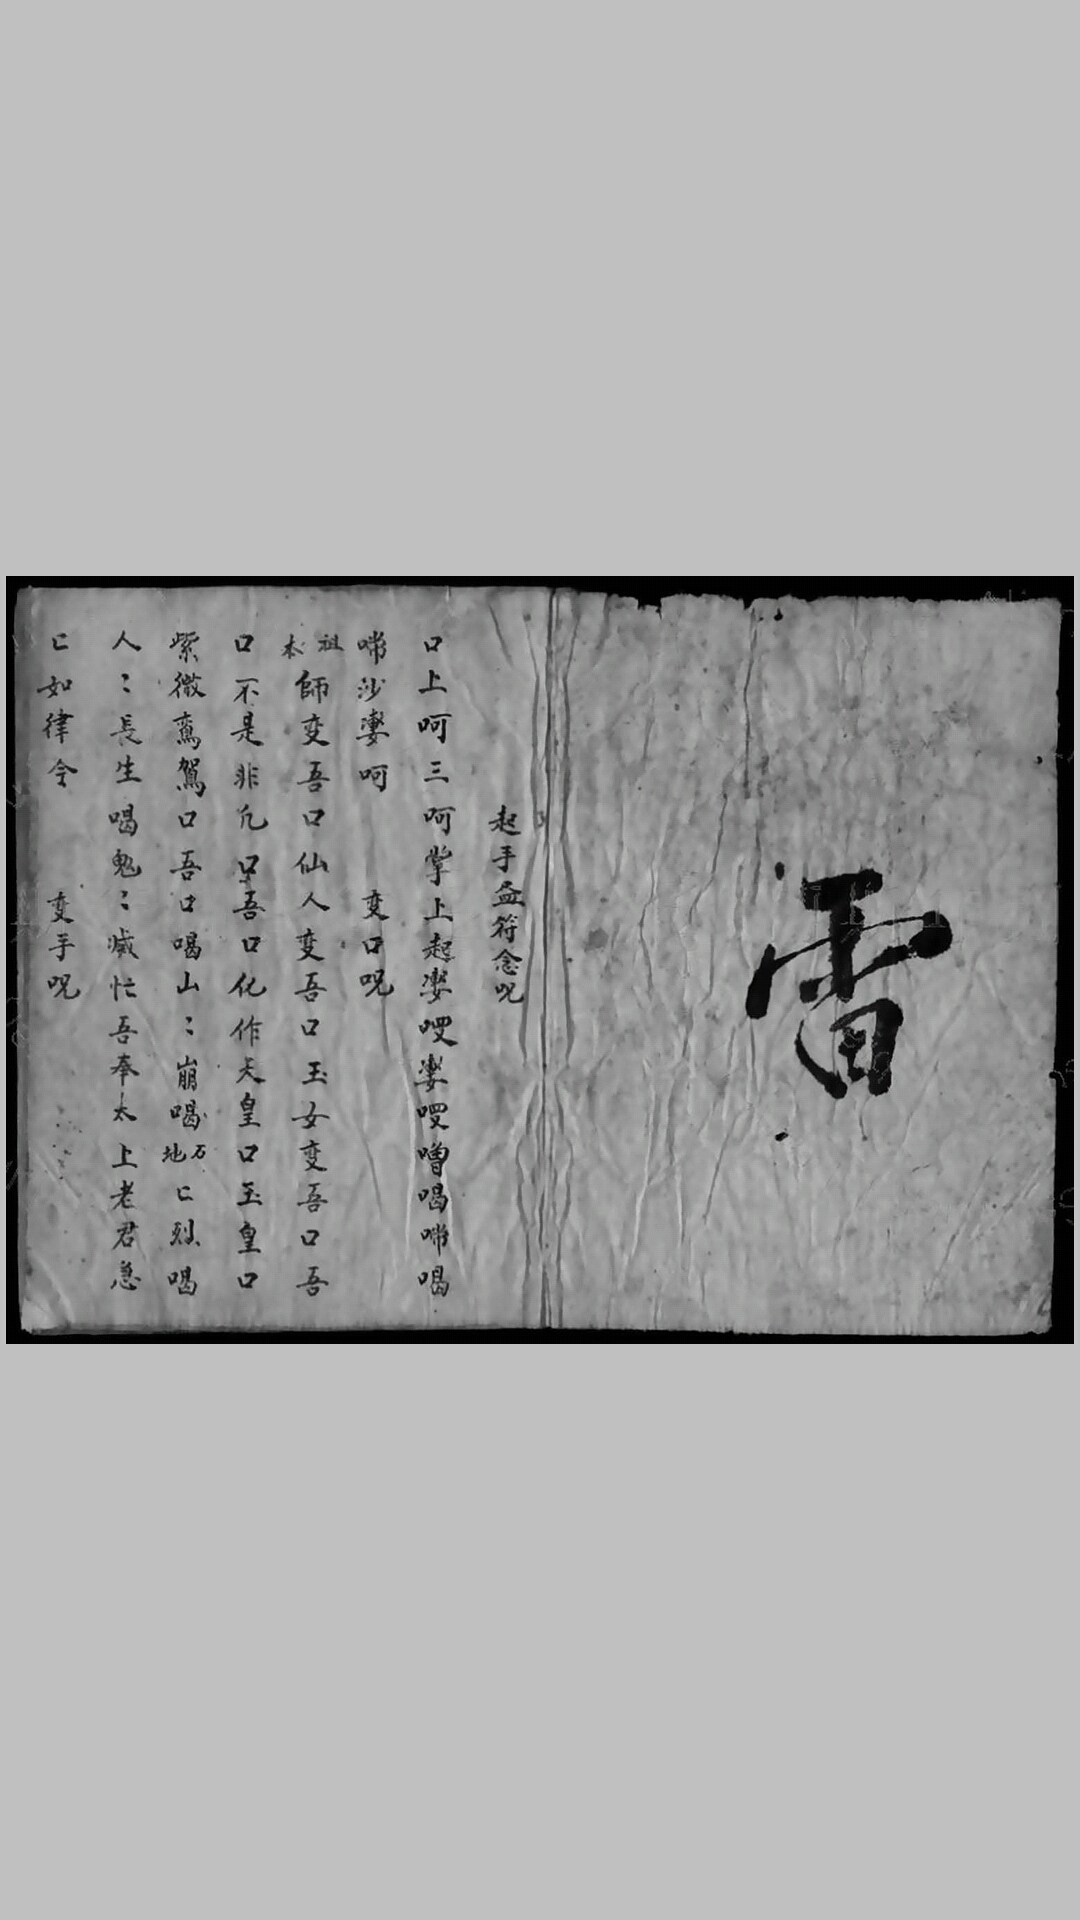 雷
起手盆符念咒
口上呵三呵掌上起婆𠸎婆𠸎噜喝啼喝
啼沙婆呵 变口咒
祖本師变吾口仙人变吾口玉女变吾口吾
口不是非凡口吾口化作天皇口玉皇口
紫微鸾駕口吾口喝山〻崩喝石地匕烈喝
人〻長生喝鬼〻滅忙吾奉太上老君急
匕如律令 变手咒